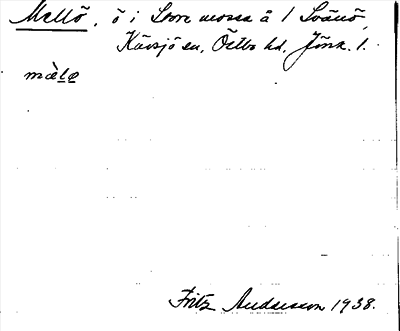 Mellö, ö i Store mosse å 1 Svänö,
Kävsjö sn, Östbo hd, Jönk. l.
mæ̀le̠
Fritz Andersson 1938.